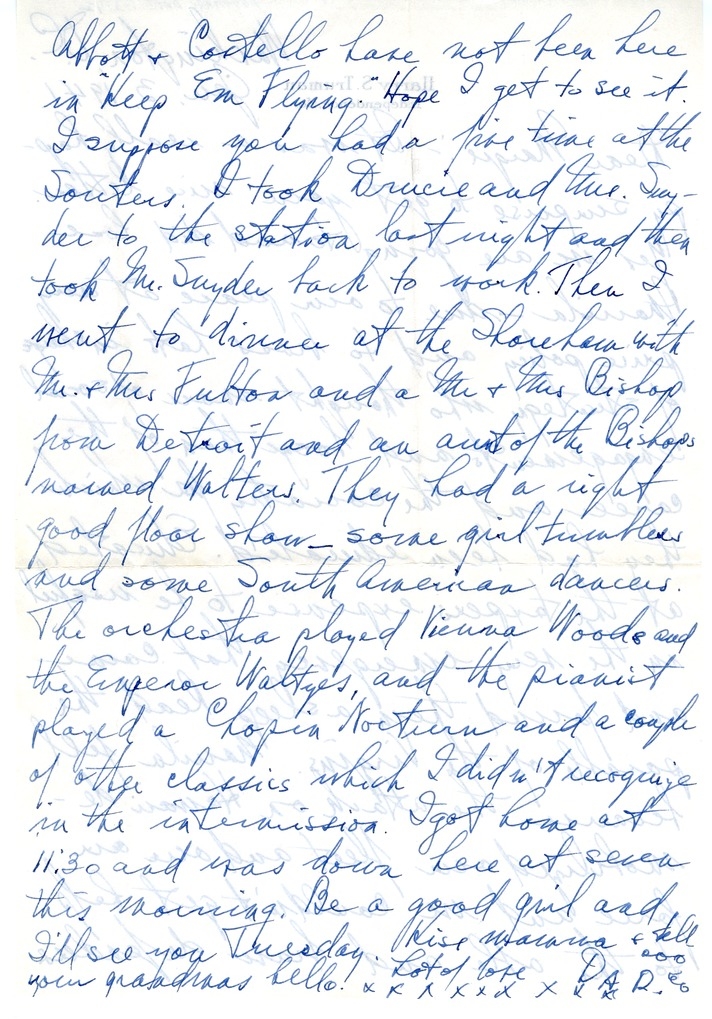 Abbott & Costello have not been here
in "Keep Em Flying." Hope I get to see it.
I suppose you had a fine time at the
Souters. I took Drucie and Mrs. Sny-
der to the station last night and then
took Mr. Snyder back to work. Then I
went to dinner at the Shoreham with
Mr. & Mrs Fulton and a Mr & Mrs Bishop
from Detroit and an aunt of the Bishops
named Walters. They had a right
good floor show_ some girl tumblers
and some South American dancers.
The orchestra played Vienna Woods and
the Emperor Waltzes, and the pianist
played a Chopin Nocturn and a couple
of other classics which I didn't recognize
in the intermission. I got home at
11:30 and was down here at seven
this morning. Be a good girl and
I'll see you Tuesday. Kiss mamma & tell
your grandmas hello. Lot of love DAD. ooo
x x x x x x x x x oo
Harry S. Truman
Independence